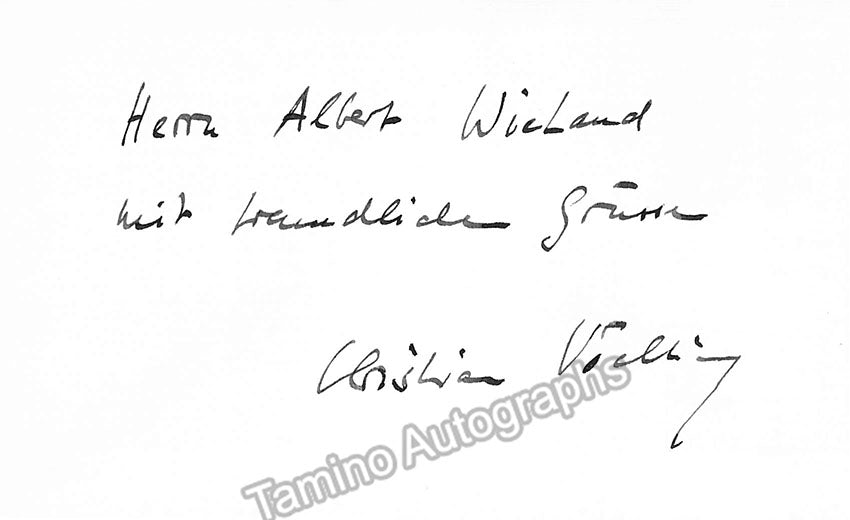 Herrn Albert Wieland
mit freundlichen Grüssen
Christian Vöchting
Tamino Autographs